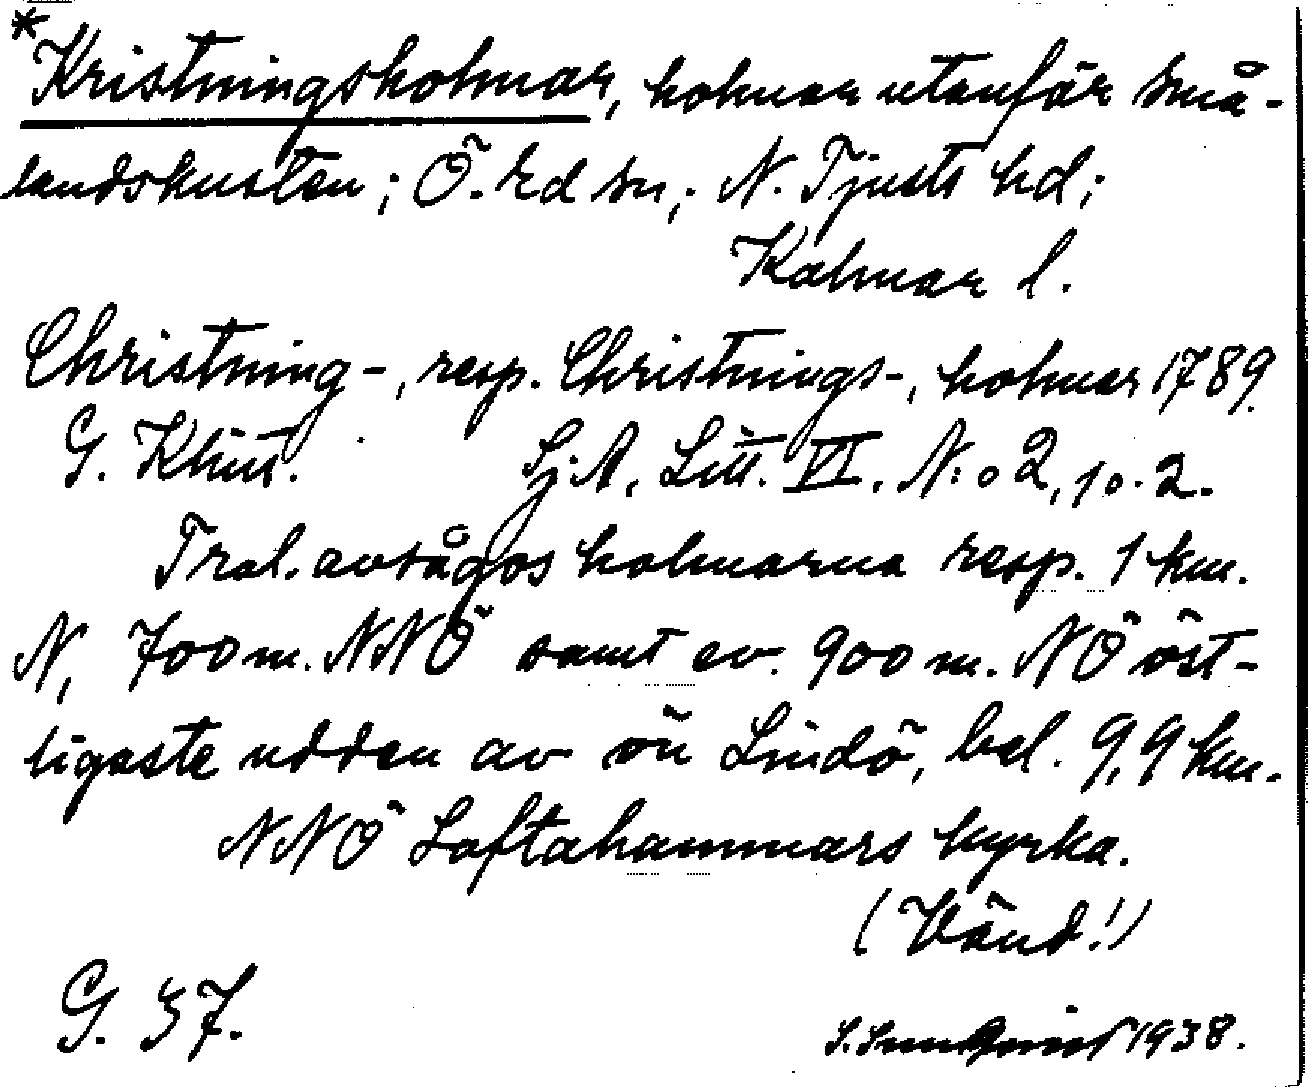 *Kristningsholmar, holmar utanför Små-
landskusten; Ö. Ed sn; N. Tjusts hd;
Kalmar l.
Christning-, resp. Christnings-, holmar 1789.
G. Klint. Sj: A, Litt. VI. N:o 2, 10. 2.
Trol. avsågos holmarna resp. 1 km.
N, 700 m. NNÖ samt ev. 900 m. NÖ öst-
ligaste udden av ön Lindö, bel. 9,9 km.
NNÖ Loftahammars kyrka.
(Vänd!)
G. 37.
S. 1938.